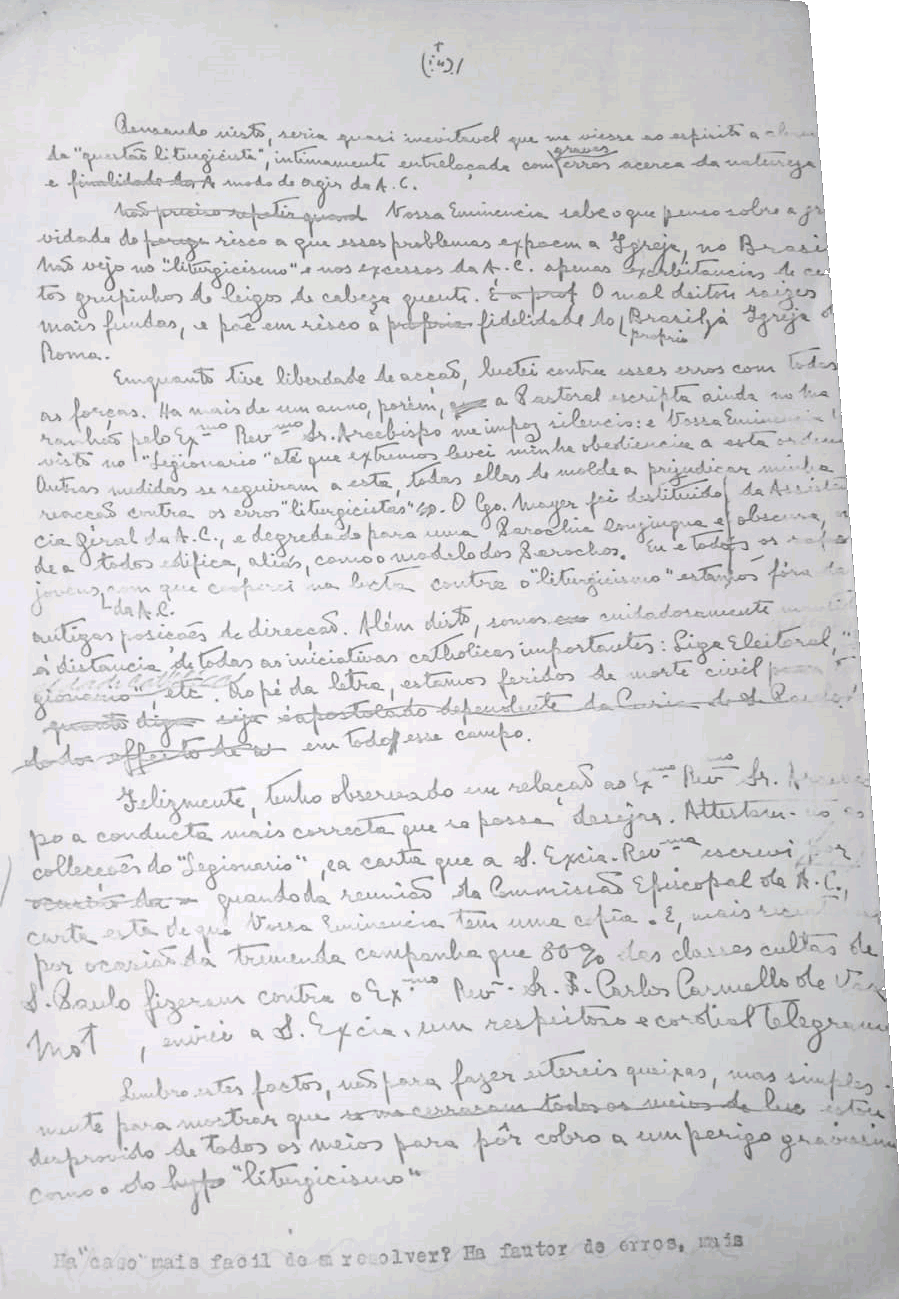 Pensando nisto, seria quasi inevitavel que me viesse ao espirito a
graves
da "questão liturgicista", intimamente entrelaçada com erros acerca da natureza
e finalidade do modo de agir da A.C.
Não preciso repetir quand Vossa Eminencia sabe o que penso sobre a gr
vidade do perigo risco a que esses problemas expoem a Igreja, no Brasi
Não vejo no "liturgicismo" e nos excessos da A.C. apenas exorbitancias de ce
tos grupinhos de leigos de cabeça quente. É a prof O mal deitou raizes
mais fundas, e põe em risco a propria fidelidade do Brasil á Igreja d
proprio
Roma.
Emquanto tive liberdade de acção, luctei contra esses erros com todas
as forças. Ha mais de um anno, porém, a Pastoral escripta ainda no Ma
ranhão pelo Exmo Revmo Sr. Arcebispo me impoz silencio: e Vossa Eminencia
visto no "Legionario" até que extremos levei minha obediencia a esta ordem
Outras medidas se seguiram a esta, todas ellas de molde a prejudicar minha
reacção contra os erros "liturgicistas". O Cgo. Mayer foi destituido da Assisten
cia Geral da A.C., e degredado para uma Parochia longinqua e obscura, o
de a todos edifica, aliás, como o modelo dos Parochos. Eu e todos os
jovens, com que cooperei na lucta contra o "liturgicismo" estamos fóra da
da A.C.
antigas posições de direcção. Além disto, somos cuidadosamente
á distancia de todas as iniciativas catholicas importantes: Liga Eleitoral, "
gionario", etc. Ao pé da letra, estamos feridos de morte civil para
quanto diga seja apostolado dependente da Curia de S. Paulo
dados effeito de em todo esse campo.
Felizmente, tenho observado em relação ao Exmo Revmo Sr.
po a conducta mais correcta que se possa desejar. Attestam-no as
collecções do "Legionario", e a carta que a S. Excia. Revma escrevi, por
ocasião da quando da reunião da Commissão Episcopal da A.C.,
carta esta de que Vossa Eminencia tem uma copia. E, mais
por ocasião da tremenda campanha que 80% das classes cultas de
S. Paulo fizeram contra o Exmo Revmo Sr. D. Carlos Carmello de Vas
Mot , enviei a S. Excia. um respeitoso e cordial telegramm
Lembro estes factos, não para fazer estereis queixas, mas simples-
mente para mostrar que se me cerraram todos os meios de luc estou
desprovido de todos os meios para pôr cobro a um perigo gravissim
como o do hyp "liturgicismo"
Ha "caso" mais facil de resolver? Ha fautor de erros, mais